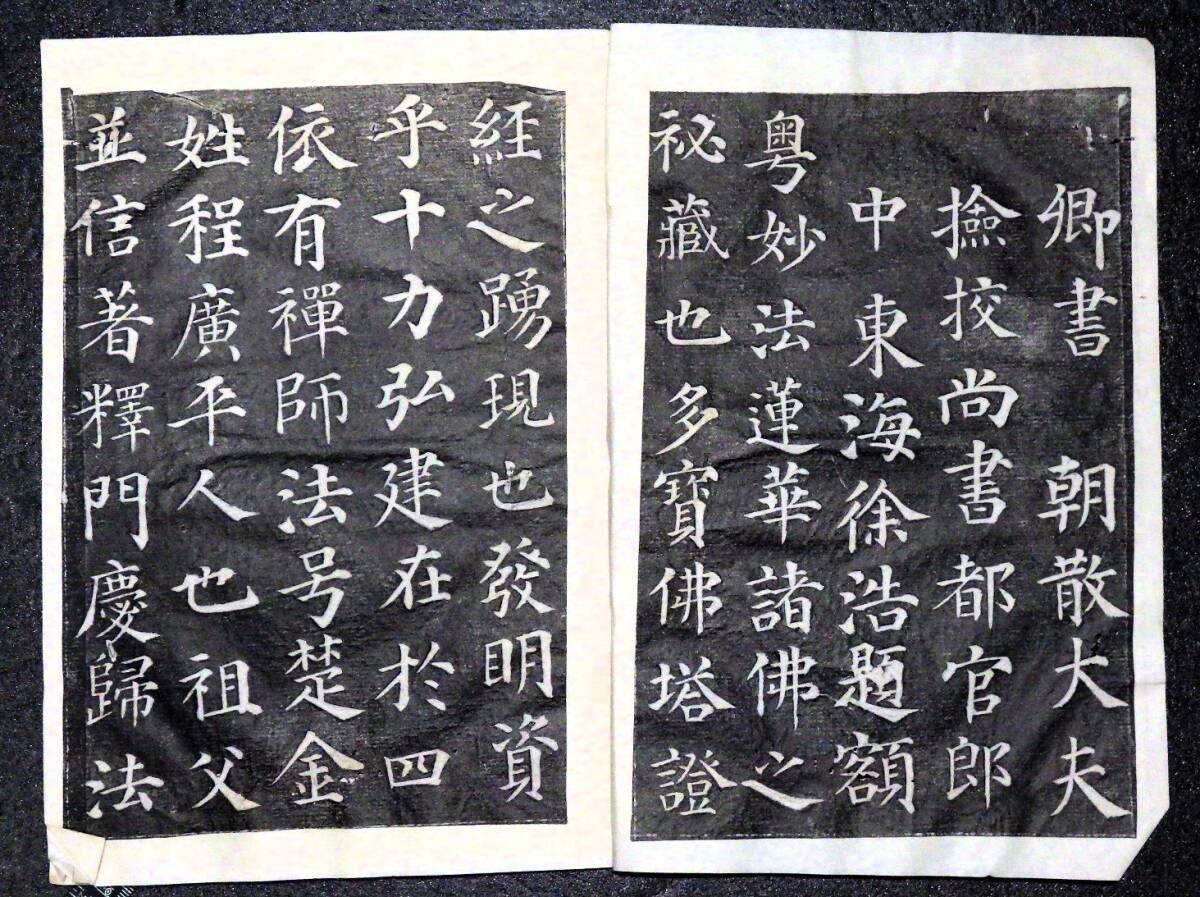 卿書 朝散大夫
撿挍尚書都官郎
中 東海徐浩題額
粵妙法蓮華諸佛之
祕藏也多寶佛塔證
經之踴現也發明資
乎十力弘建在於四
依有禪師法号楚金
姓程廣平人也祖父
並信著釋門慶歸法